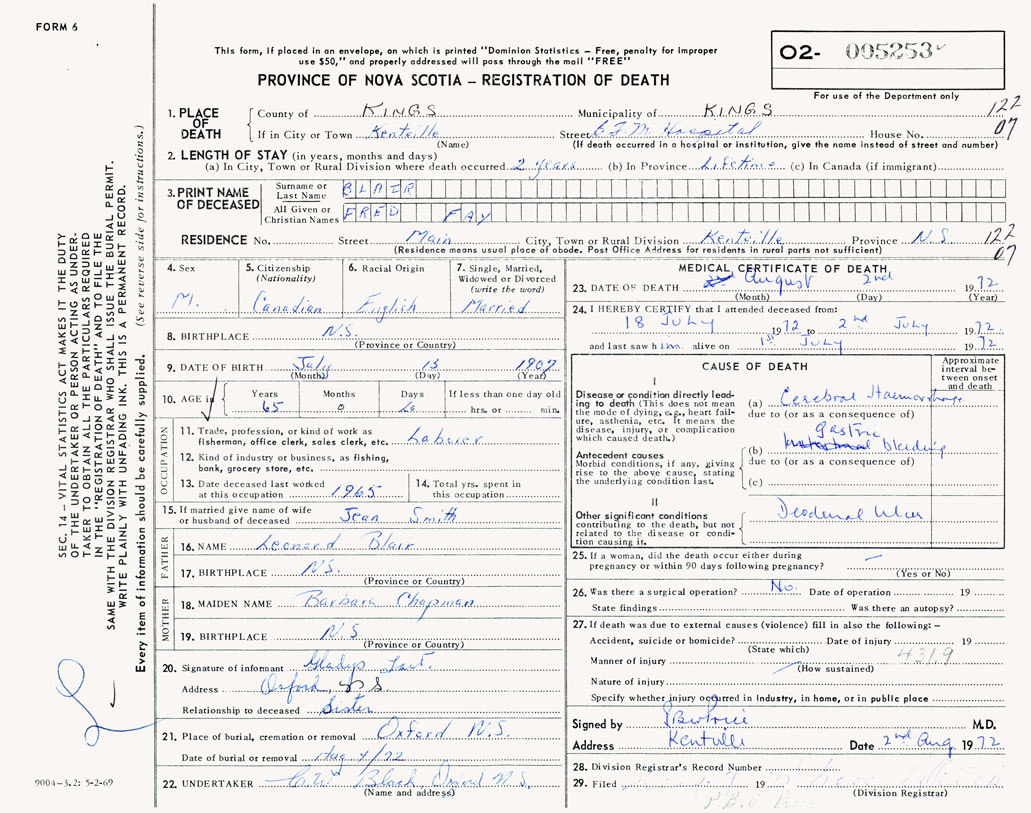 FORM 6
This form, if placed in an envelope, on which is printed "Dominion Statistics – Free, penalty for improper
use $50," and properly addressed will pass through the mail "FREE"
PROVINCE OF NOVA SCOTIA – REGISTRATION OF DEATH
O2- 005253
For use of the Department only
122
07
1. PLACE OF DEATH
County of KINGS Municipality of KINGS
If in City or Town Kentville Street B.F.M. Hospital House No.
(Name) (If death occurred in a hospital or institution, give the name instead of street and number)
2. LENGTH OF STAY (in years, months and days)
(a) In City, Town or Rural Division where death occurred 2 years (b) In Province Lifetime (c) In Canada (if immigrant)
3. PRINT NAME OF DECEASED
Surname or Last Name BLAIR
All Given or Christian Names FRED FAY
RESIDENCE No. Street Main City, Town or Rural Division Kentville Province N.S. 122
(Residence means usual place of abode. Post Office Address for residents in rural parts not sufficient) 07
4. Sex
M.
5. Citizenship
(Nationality)
Canadian
6. Racial Origin
English
7. Single, Married,
Widowed or Divorced
(write the word)
Married
8. BIRTHPLACE N.S.
(Province or Country)
9. DATE OF BIRTH July 13 1907
(Month) (Day) (Year)
10. AGE in
Years Months Days If less than one day old
65 0 20 hrs. or min.
OCCUPATION
11. Trade, profession, or kind of work as
fisherman, office clerk, sales clerk, etc. Laborer
12. Kind of industry or business, as fishing,
bank, grocery store, etc.
13. Date deceased last worked
at this occupation 1965
14. Total yrs. spent in
this occupation
15. If married give name of wife
or husband of deceased Jean Smith
FATHER
16. NAME Leonard Blair
17. BIRTHPLACE N.S.
(Province or Country)
MOTHER
18. MAIDEN NAME Barbara Chapman
19. BIRTHPLACE N.S
(Province or Country)
20. Signature of informant Gladys
Address Oxford, N.S.
Relationship to deceased Sister
21. Place of burial, cremation or removal Oxford N.S.
Date of burial or removal Aug. 4/72
22. UNDERTAKER Black, Oxford N.S.
(Name and address)
MEDICAL CERTIFICATE OF DEATH
23. DATE OF DEATH August 2nd 1972
(Month) (Day) (Year)
24. I HEREBY CERTIFY that I attended deceased from:
18 July 1972 to 2nd July 1972
and last saw him alive on 1st July 1972
CAUSE OF DEATH
Approximate
interval be-
tween onset
and death
I
Disease or condition directly lead-
ing to death (This does not mean
the mode of dying, e.g., heart fail-
ure, asthenia, etc. It means the
disease, injury, or complication
which caused death.)
(a) Cerebral Haemorrhage
due to (or as a consequence of)
Antecedent causes
Morbid conditions, if any, giving
rise to the above cause, stating
the underlying condition last.
gastric
(b) bleeding
due to (or as a consequence of)
(c)
II
Other significant conditions
contributing to the death, but not
related to the disease or condi-
tion causing it.
Deodenal Ulcer
25. If a woman, did the death occur either during
pregnancy or within 90 days following pregnancy? –
(Yes or No)
26. Was there a surgical operation? No. Date of operation 19
State findings Was there an autopsy?
27. If death was due to external causes (violence) fill in also the following: –
Accident, suicide or homicide? Date of injury 19
(State which)
4319
Manner of injury
(How sustained)
Nature of injury
Specify whether injury occurred in industry, in home, or in public place
Signed by M.D.
Address Kentville Date 2nd Aug. 1972
28. Division Registrar's Record Number
29. Filed 19
(Division Registrar)
SEC. 14 – VITAL STATISTICS ACT MAKES IT THE DUTY
OF THE UNDERTAKER OR PERSON ACTING AS UNDER-
TAKER TO OBTAIN ALL THE PARTICULARS REQUIRED
IN THE "REGISTRATION OF DEATH" AND TO FILE THE
SAME WITH THE DIVISION REGISTRAR WHO SHALL ISSUE THE BURIAL PERMIT.
WRITE PLAINLY WITH UNFADING INK. THIS IS A PERMANENT RECORD.
Every item of information should be carefully supplied. (See reverse side for instructions.)
9004-3.2: 5-2-69